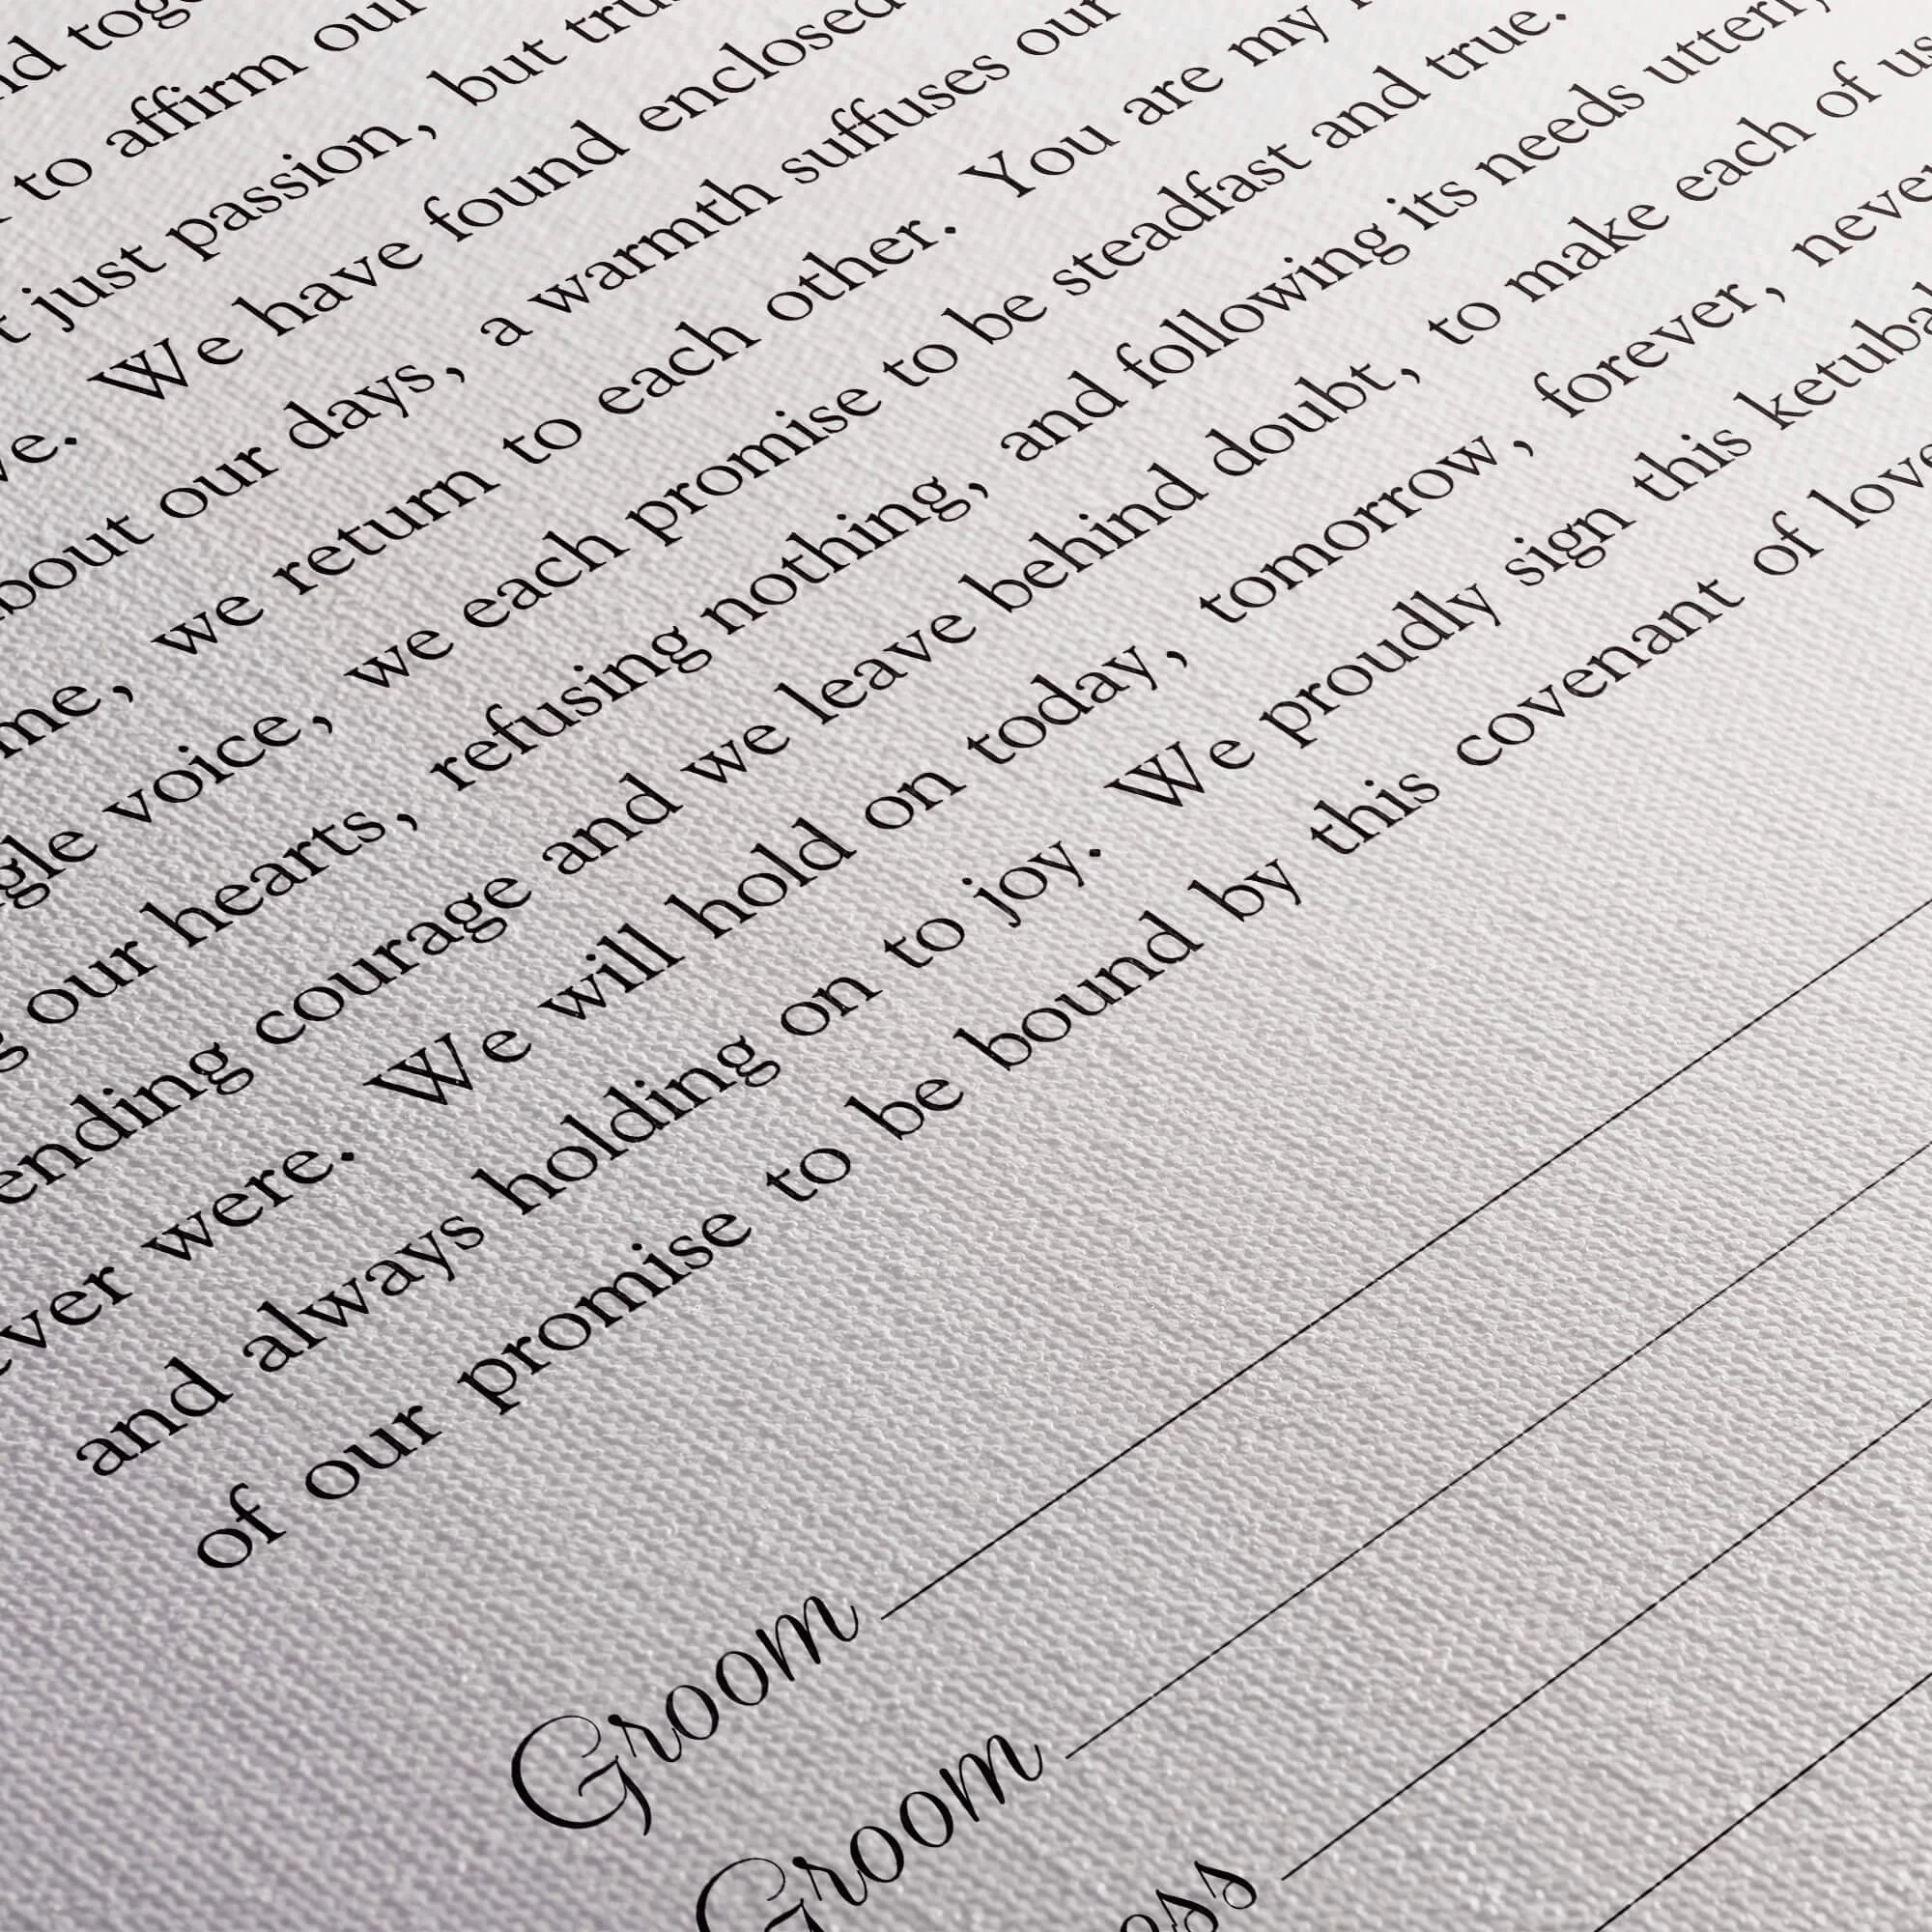 to affirm our
just passion, but
We have found enclosed
our days, a warmth suffuses our
we return to each other. You are my
voice, we each promise to be steadfast and true.
our hearts, refusing nothing, and following its needs utterly,
courage and we leave behind doubt, to make each of us
were. We will hold on today, tomorrow, forever, never
and always holding on to joy. We proudly sign this ketubah
of our promise to be bound by this covenant of love
Groom
Groom